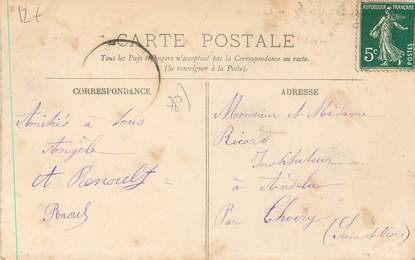 12 €
CARTE POSTALE
Tous les Pays étrangers n'acceptent pas la Correspondance au recto.
(Se renseigner à la Poste).
CORRESPONDANCE
ADRESSE
REPUBLIQUE FRANÇAISE
5c
POSTES
78)
Amitiés a tous
Angèle
et Renoult
Raoul
Monsieur et Madame
Ricard
Instituteur
à Andelu
Par Thoiry
(Seine et Oise)